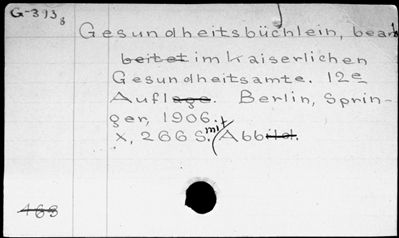 G-313₈
Gesundheitsbüchlein, bear
beitet im Kaiserlichen
Gesundheitsamte. 12e
Auflage. Berlin, Sprin-
ger, 1906.
X, 266 S. mit Abbild.
468